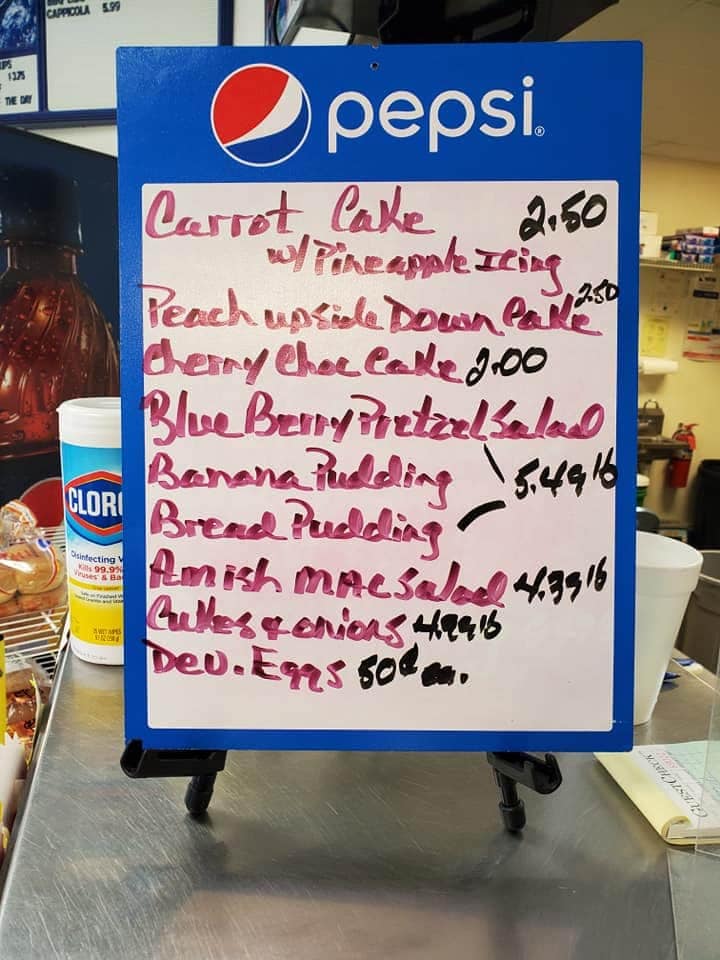 CAPPICOLA 5.99
13.75
THE DAY
pepsi®
Carrot Cake 2.50
w/ Pineapple Icing
Peach upside Down Cake 2.50
Cherry Choc Cake 2.00
Blue Berry Pretzel Salad
Banana Pudding 5.49 lb
Bread Pudding
Amish Mac Salad 4.39 lb
Cukes & onions 4.29 lb
Dev. Eggs 50¢ ea.
CLORO
Disinfecting W
Kills 99.9%
Viruses & Bac
GUEST CHECK